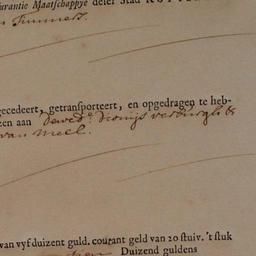 urantie Maatschappye deser Stad ROTT
Timmers.
gecedeert, getransporteert, en opgedragen te heb-
zen aan de wed.e Dionijs verburgh &
van meel.
van vyf duizent guld. courant geld van 20 stuiv. 't stuk
Duizend guldens